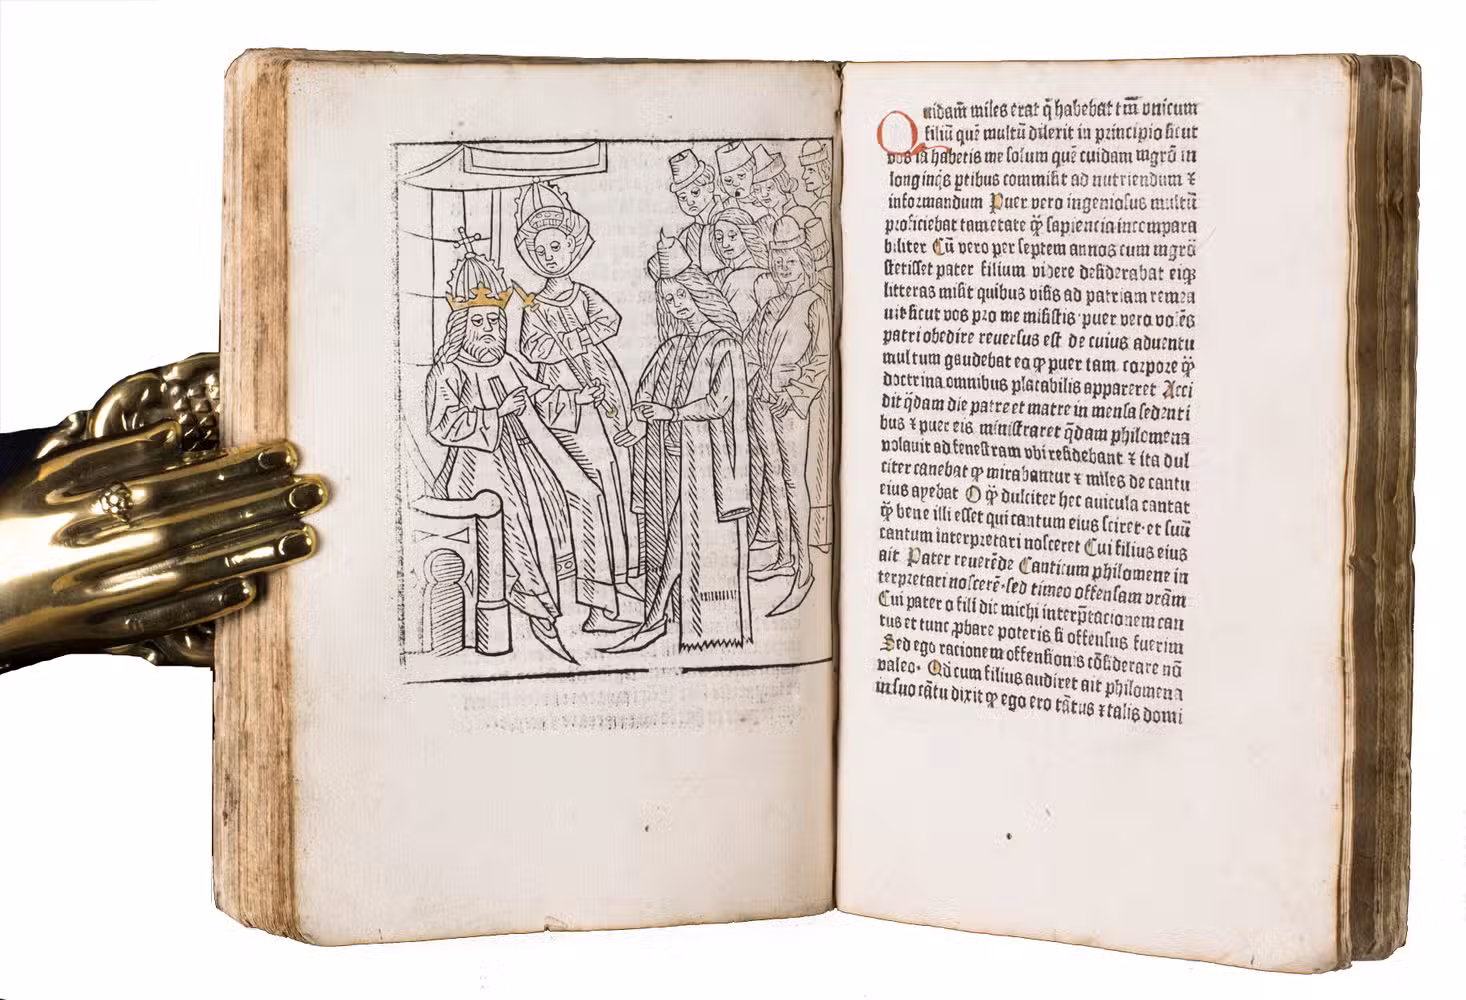 Quidam̄ miles erat q̄ habebat tm̄ vnicum
filiū quē multū dilexit in principio sicut
vos iā habetis me solum quē cuidam mgrō in
longinq̄s ꝑtibus commisit ad nutriendum ⁊
informandum Puer vero ingeniosus multū
proficiebat tam etate q̄ sapiencia incompara
biliter Cū vero per septem annos cum mgrō
stetisset pater filium videre desiderabat eiqꝫ
litteras misit quibus visis ad patriam remea
uit sicut vos pro me misistis puer vero volēs
patri obedire reuersus est de cuius aduentu
multum gaudebat eo ꝙ puer tam corpore q̄
doctrina omnibus placabilis appareret Acci
dit q̄dam die patre et matre in mensa sedenti
bus ⁊ puer eis ministraret q̄dam philomena
volauit ad fenestram vbi residebant ⁊ ita dul
citer canebat ꝙ mirabantur ⁊ miles de cantu
eius ayebat O q̄ dulciter hec auicula cantat
q̄ bene illi esset qui cantum eius sciret· et suū
cantum interpretari nosceret Cui filius eius
ait Pater reuerēde Canticum philomene in
terpretari noscerē· sed timeo offensam vrām
Cui pater o fili dic michi interp̄tacionem can
tus et tunc ꝓbare poteris si offensus fuerim
Sed ego racionem offensionis cōsiderare nō
valeo· Qd cum filius audiret ait philomena
in suo cātu dixit ꝙ ego ero tātus ⁊ talis domi